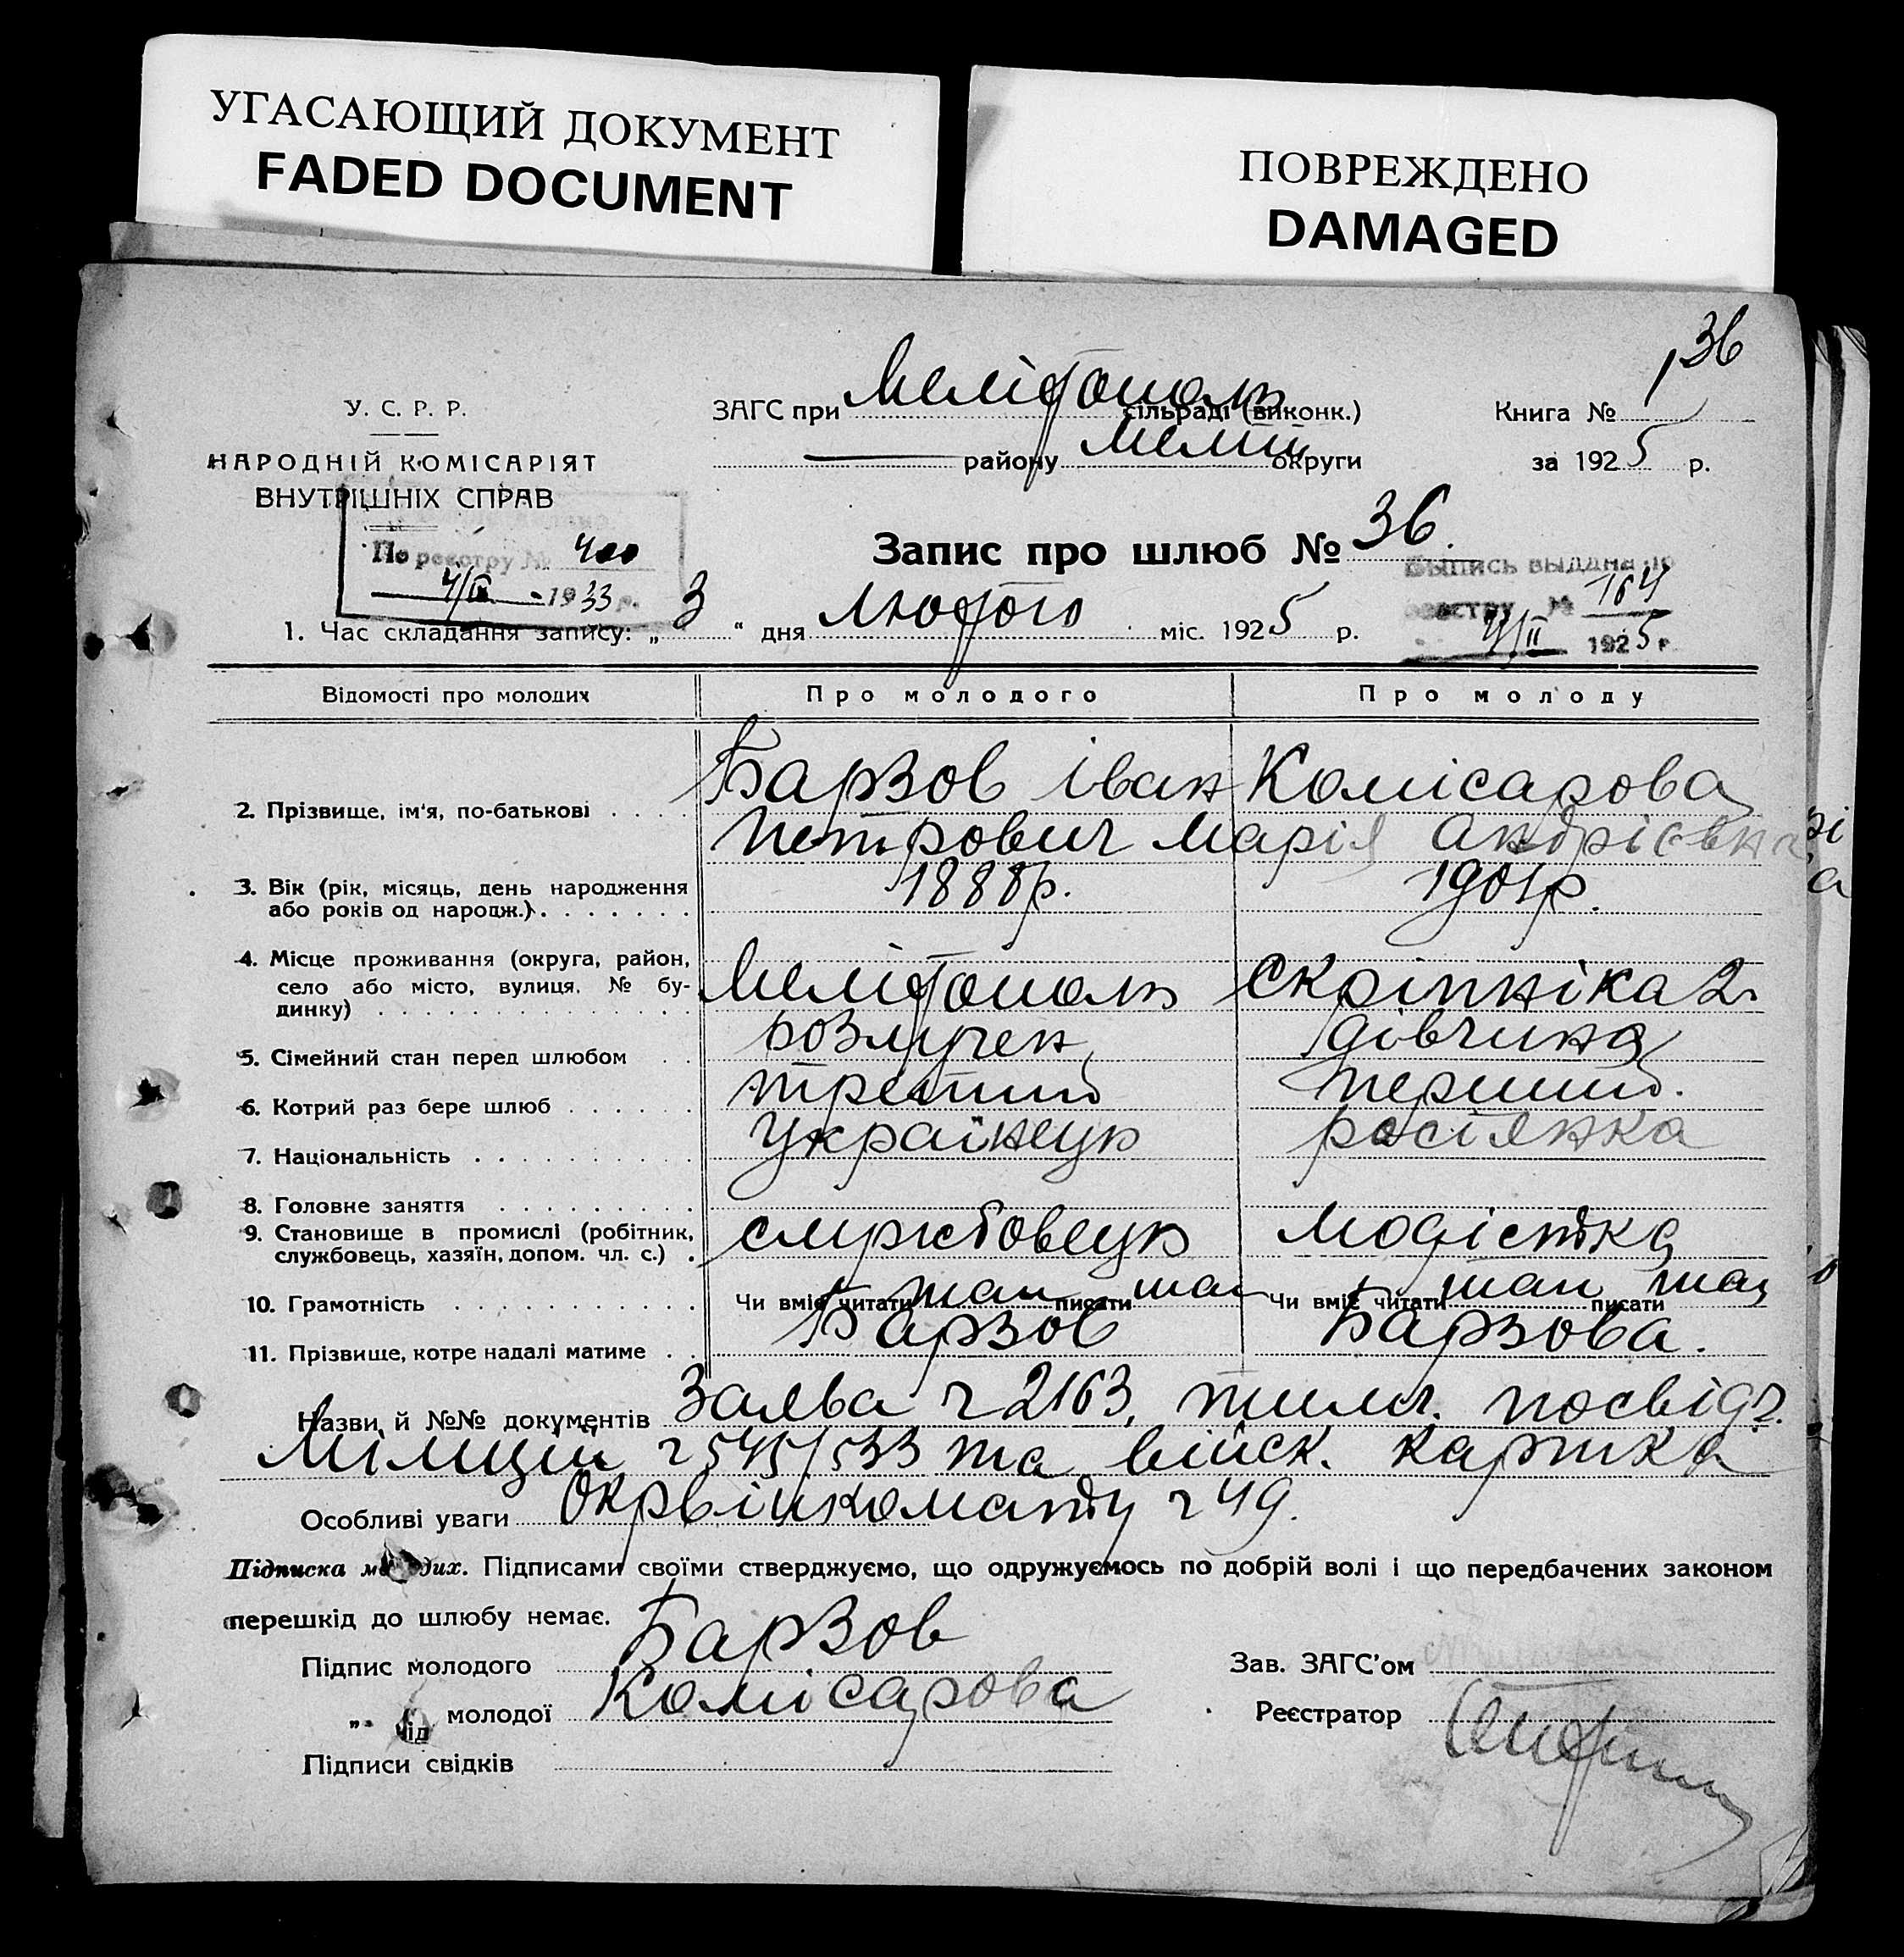 УГАСАЮЩИЙ ДОКУМЕНТ
FADED DOCUMENT
ПОВРЕЖДЕНО
DAMAGED
36
У. С. Р. Р.
НАРОДНІЙ КОМІСАРІЯТ
ВНУТРІШНІХ СПРАВ
ЗАГС при Мелітополь сільраді (виконк.)
району Меліт округи
Книга № 1
за 1925 р.
По реєстру № 400
1933 г.
Запис про шлюб № 36.
Выпись выдана по
реестру № 164
4/II 1925 г.
1. Час складання запису: „3“ дня Лютого міс. 1925 р.
Відомості про молодих Про молодого Про молоду
2. Прізвище, ім'я, по-батькові . . . . Барзов Іван Петрович Комісарова Марія Андрієвна
3. Вік (рік, місяць, день народження або років од народж.) . . . . . . . 1888р. 1901р.
4. Місце проживання (округа, район, село або місто, вулиця, № будинку) . . . . . . . . . . . . . Мелітополь Скріпніка 2
5. Сімейний стан перед шлюбом . . розлучен дівчина
6. Котрий раз бере шлюб . . . . . . третий перший.
7. Національність . . . . . . . . . . Українець росіянка
8. Головне заняття . . . . . . . . .
9. Становище в промислі (робітник, службовець, хазяїн, допом. чл. с.) . службовець модістка
10. Грамотність . . . . . . . . . . . Чи вміє читати так писати так Чи вміє читати так писати так
11. Прізвище, котре надалі матиме . . Барзов Барзова.
Назви й №№ документів Заява ч 2163, тимч. посвідч.
Міліції ч 545/533 та війск. картка
Особливі уваги Окрвійкомату ч 49.
Підписка молодих. Підписами своїми стверджуємо, що одружуємось по добрій волі і що передбачених законом
перешкід до шлюбу немає.
Підпис молодого Барзов
„ молодої Комісарова
Підписи свідків
Зав. ЗАГС'ом
Реєстратор